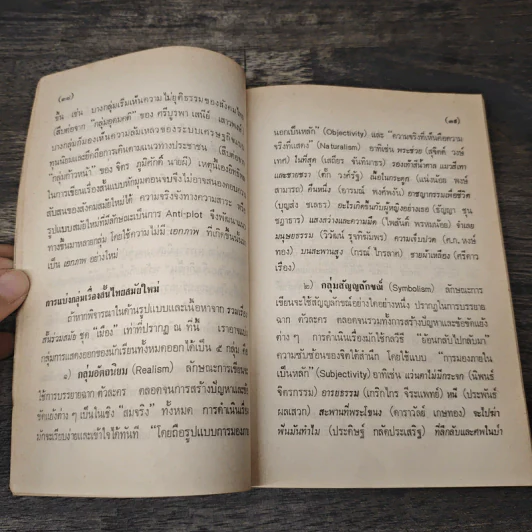 (๑๔)
ขึ้น เช่น บางกลุ่มเริ่มเห็นความไม่ยุติธรรมของสังคมไทย
(สืบต่อจาก "กลุ่มอุดมคติ" ของ ศรีบูรพา เสนีย์ เสาวพงศ์)
บางกลุ่มก็มองเห็นความล้มเหลวของระบบเศรษฐกิจแบบ
ทุนนิยมและยึดถือการเดินตามแนวทางประชาชน (สืบต่อจาก
"กลุ่มก้าวหน้า" ของ จิตร ภูมิศักดิ์ นายผี) เหตุนี้เอง
ในการเขียนเรื่องสั้นแบบตักตุมตอนจบจึงไม่อาจสนองตอบความ
สับสนของสังคมสมัยใหม่ได้ ความจริงจังทางความสาระ
รูปแบบสมัยใหม่ที่มีลักษณะเป็นการ Anti-plot จึงพัฒนา
ทางขึ้นมาหลายกลุ่ม โดยใช้ความไม่มี เอกภาพ ที่เกิดขึ้นนั้น
เป็น เอกภาพ อย่างใหม่
การแบ่งกลุ่มเรื่องสั้นไทยสมัยใหม่
ถ้าหากพิจารณาในด้านรูปแบบและเนื้อหาจาก รวมเรื่อง
สั้นร่วมสมัย ชุด "เมือง" เท่าที่ปรากฏ ณ ที่นี้ เราอาจแบ่ง
กลุ่มการแสดงออกของนักเขียนทั้งหมดออกได้เป็น ๕ กลุ่ม คือ
๑) กลุ่มอัตถนิยม (Realism) ลักษณะการเขียนจะ
ใช้การบรรยายฉาก ตัวละคร ตลอดจนการสร้างปัญหาและข้อ
ขัดแย้งต่าง ๆ เป็นเชิง "สมจริง" ทั้งหมด การดำเนินเรื่อง
มักจะเรียบง่ายและเข้าใจได้ทันที "โดยถือรูปแบบการมองภาย
(๑๕)
นอกเป็นหลัก" (Objectivity) และ "ความจริงที่เห็นคือความ
จริงที่แสดง" (Naturalism) อาทิเช่น พระชวย (สุจิตต์ วงษ์
เทศ) ในที่สุด (เสถียร จันทิมาธร) รองเท้าสีน้ำตาล แมวสีเทา
และชายชรา (ศักดิ์ วงศ์รัฐ) เนื้อในกระดูก (แน่งน้อย พงษ์
สามารถ) คืนหนึ่ง (อารมณ์ พงศ์พงัน) อาชญากรรมเพื่อชีวิต
(บุญส่ง ชเลธร) อะไรเกิดขึ้นกับผู้หญิงอย่างเธอ (ธัญญา ชุน
ชฎาธาร) แสงสว่างและความมืด (ไพสันติ์ พรหมน้อย) จำเลย
มนุษยธรรม (วิวัฒน์ รุจทิฆัมพร) ความเจ็บปวด (ค.ภ. หงษ์
ทอง) บนสะพานสูง (กรณ์ ไกรลาศ) ชายผ้าเหลือง (ศรีดาว
เรือง)
๒) กลุ่มสัญญลักษณ์ (Symbolism) ลักษณะการ
เขียนจะใช้สัญญลักษณ์อย่างใดอย่างหนึ่ง ปรากฏในการบรรยาย
ฉาก ตัวละคร ตลอดจนรวมทั้งการสร้างปัญหาและข้อขัดแย้ง
ต่าง ๆ การดำเนินเรื่องมักใช้กลวิธี "ย้อนกลับไปกลับมา"
ความซับซ้อนของจิตใต้สำนึก โดยใช้แบบ "การมองภายใน
เป็นหลัก" (Subjectivity) อาทิเช่น แว่นตาไม่มีกระจก (นิพนธ์
จิตรกรรม) อารยธรรม (เกริกไกร จิระแพทย์) หนี (ประพันธ์
ผลเสวก) สะพานที่พระโขนง (ดาราวัลย์ เกษทอง) จะไปฆ่า
พันมันทำไม (ประดิษฐ์ กลัดประเสริฐ) ที่ลึกลับและศพในป่า